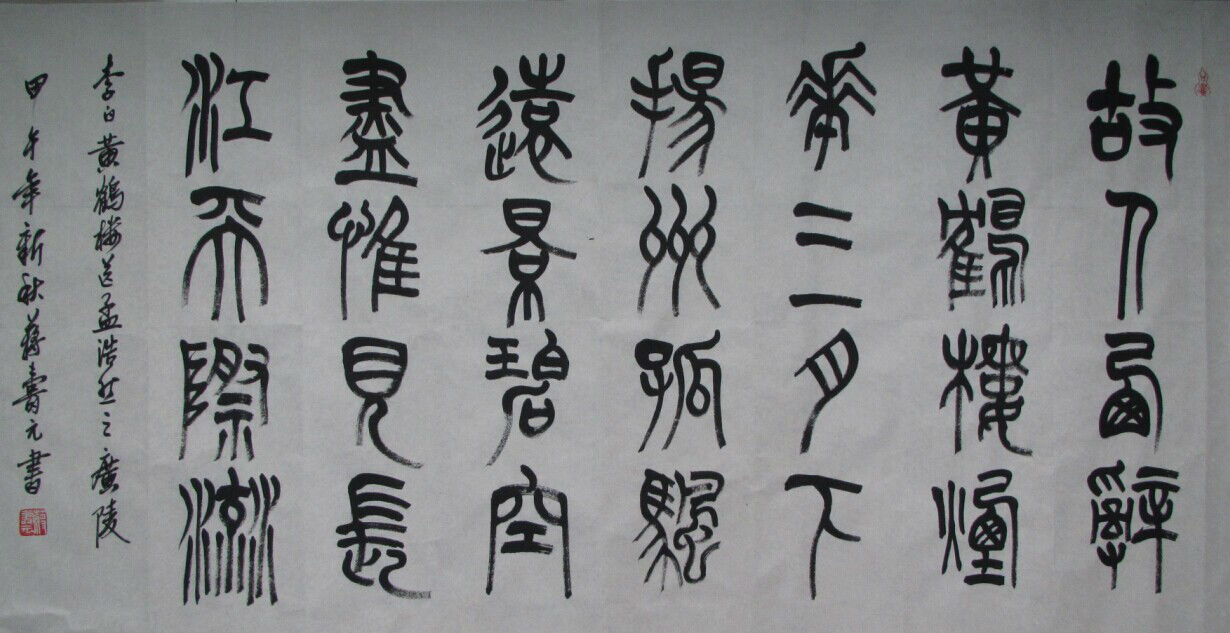 故人西辭
黃鶴樓煙
華三月下
揚州孤颿
遠景碧空
盡惟見長
江天際流
李白黄鶴楼送孟浩然之廣陵
甲午年新秋蔣壽元書